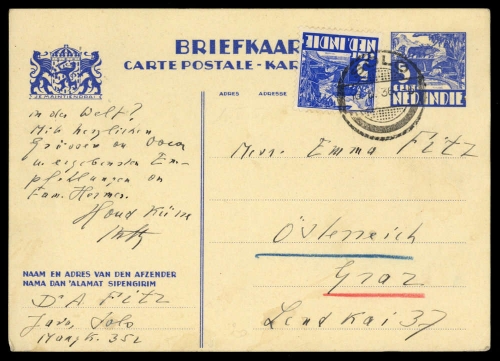 BRIEFKAAR
CARTE POSTALE - KAR
JE MAINTIENDRAI
ADRES ADRESSE
NED. INDIE
5
NED. INDIE
in der Welt?
Mit herzlichen
Grüssen an
u. ergebensten Em-
pfehlungen an
Fam. Hermen.
Hand Küsse
Mevr. Emma Fitz
Österreich
Graz
Lend Kai 37
NAAM EN ADRES VAN DEN AFZENDER
NAMA DAN 'ALAMAT SIPENGIRIM
Dr A Fitz
Java, Solo
Mangk. 352